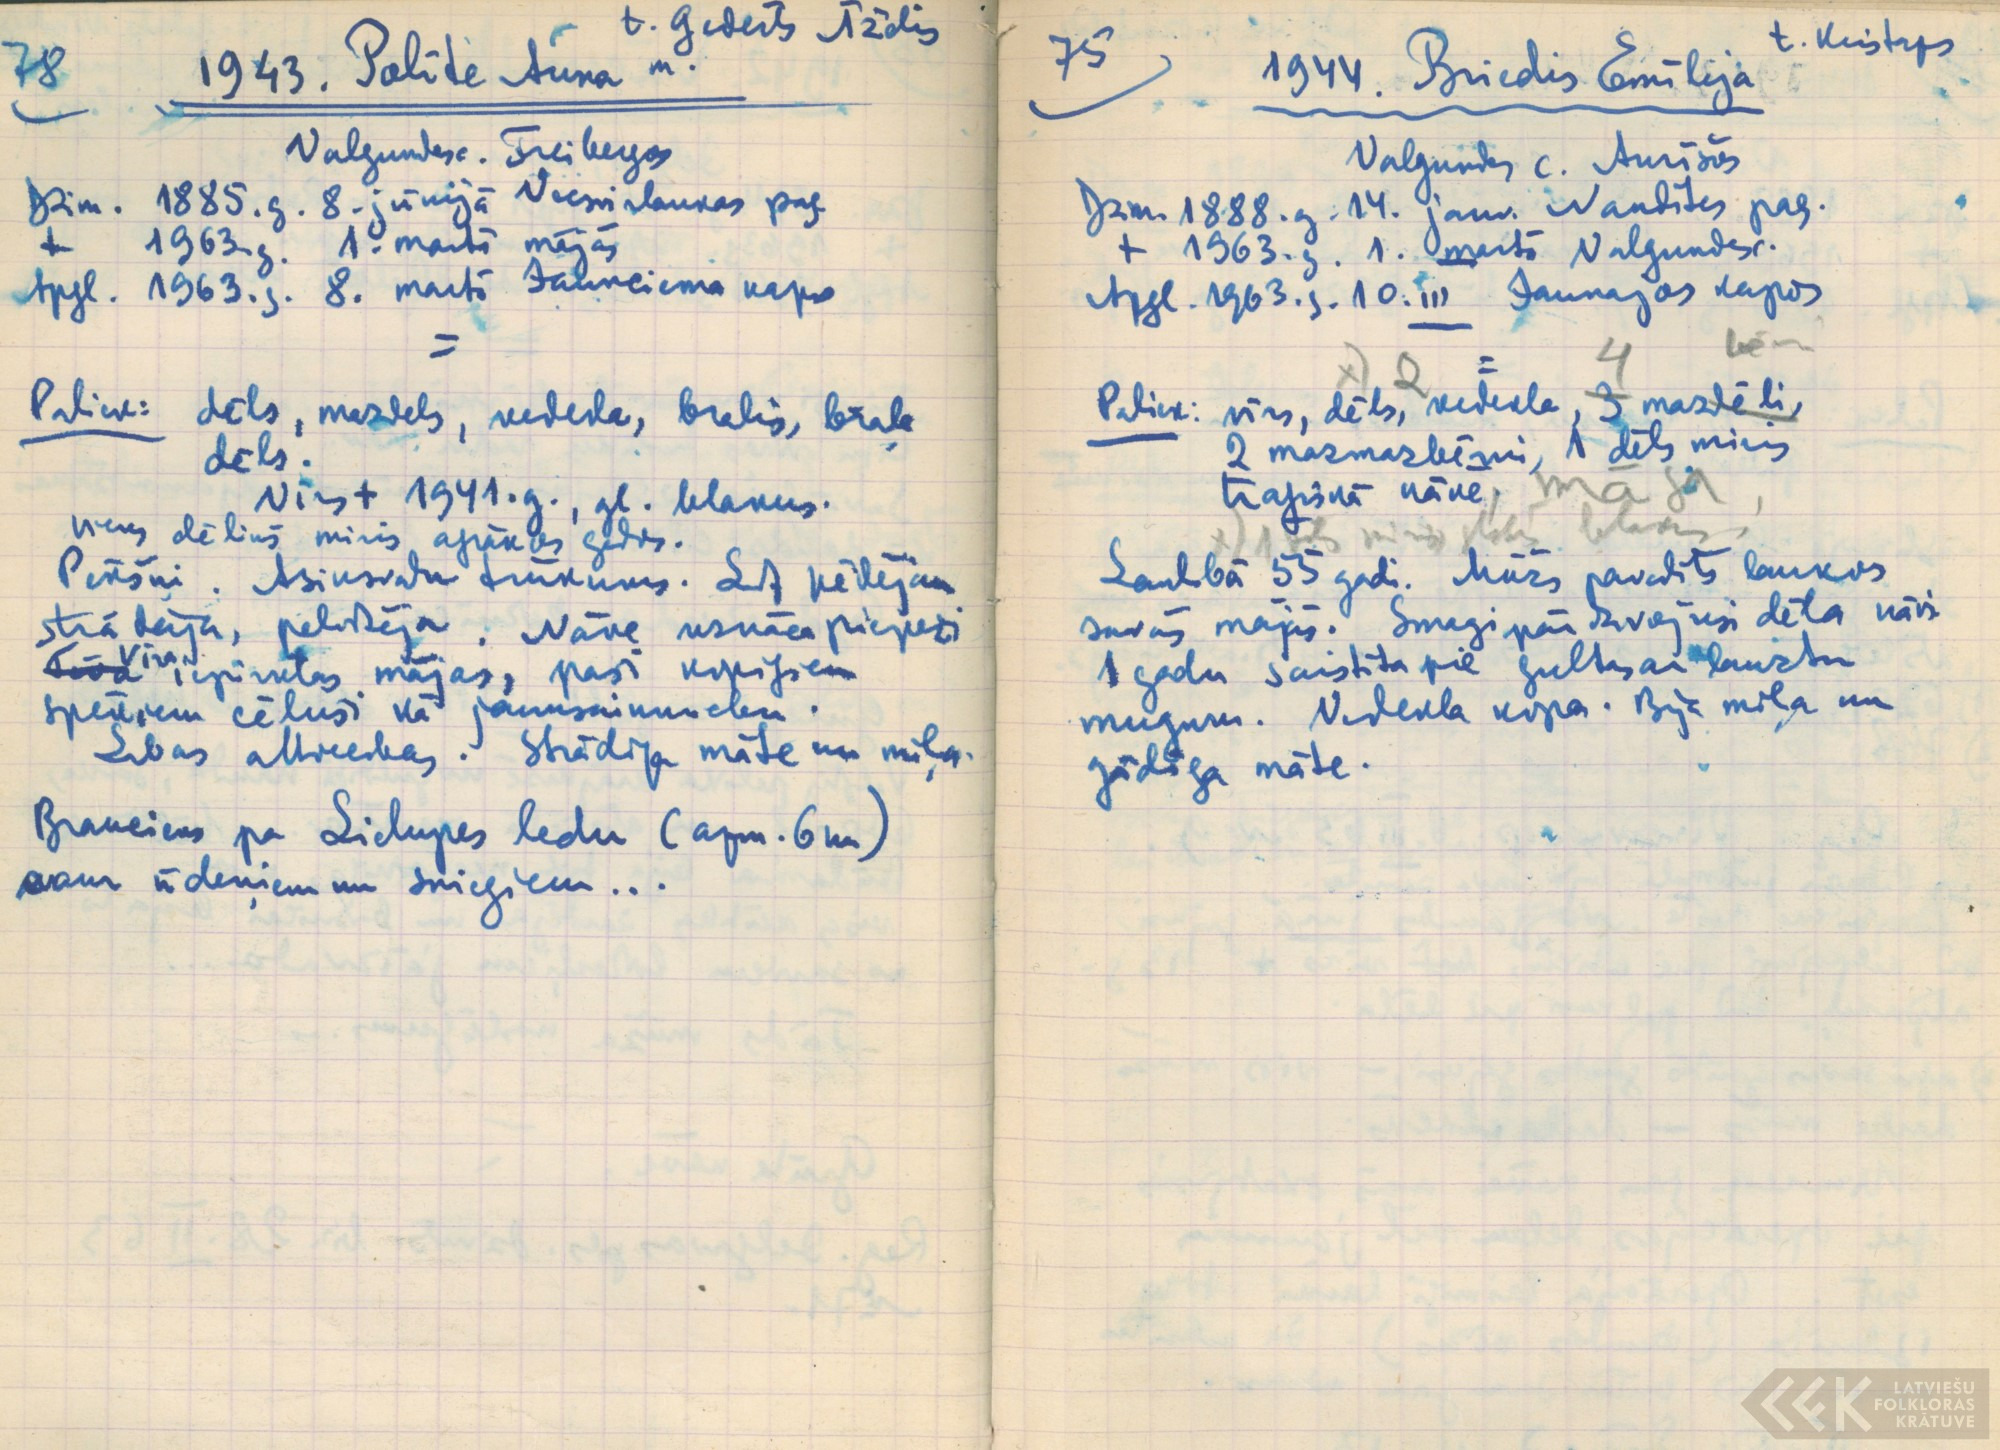 78
t. Gederts Āždis
1943. Polīte Anna m.
Valgundes c. Freibergos
Dzim. 1885.g. 8. jūnijā Viesvirlaukas pag.
+ 1963.g. 1. martā mājās
Apgl. 1963.g. 8. martā Jaunciema kapos
=
Paliek: dēls, mazdels, vedekla, bralis, brāļa
dēls.
Vīrs + 1941.g., gl. blakus.
viens dēliņš miris agrākos gados.
Pēkšņi. Asinsvadu trūkums. Līdz pēdējam
strādāja, pelnīja. Nāve uznāca piepeši
Vīra iepirktas mājas, paši kopīgiem
spēkiem cēluši kā jaunsaimnieku.
Labas attiecibas. Strādīga māte un mīļa.
Brauciens pa Lielupes ledu (apm. 6 km)
caur ūdeņiem un sniegiem...
75
t. Kristaps
1944. Briedis Emīlija
Valgundes c. Aurīšōs
Dzim. 1888.g. 14. janv. Vandītes pag.
+ 1963.g. 1. martā Valgundes c.
Apgl. 1963.g. 10. III Jaunajos kapos
=
x) 2 4
Paliek: vīrs, dēls, vedekla, 3 mazdēli,
2 mazmazbērni, 1 dēls miris
traģiskā nāvē, māsa,
x) 1 dēls miris blakus
Laulībā 55 gadi. Mūžs pavadīts laukos
savās mājās. Smagi pārdzīvojusi dēla nāvi
1 gadu saistīta pie gultas ar lauztu
muguru. Vedekla kopa. Bija mīļa un
gādīga māte.
LATVIEŠU
FOLKLORAS
KRĀTUVE